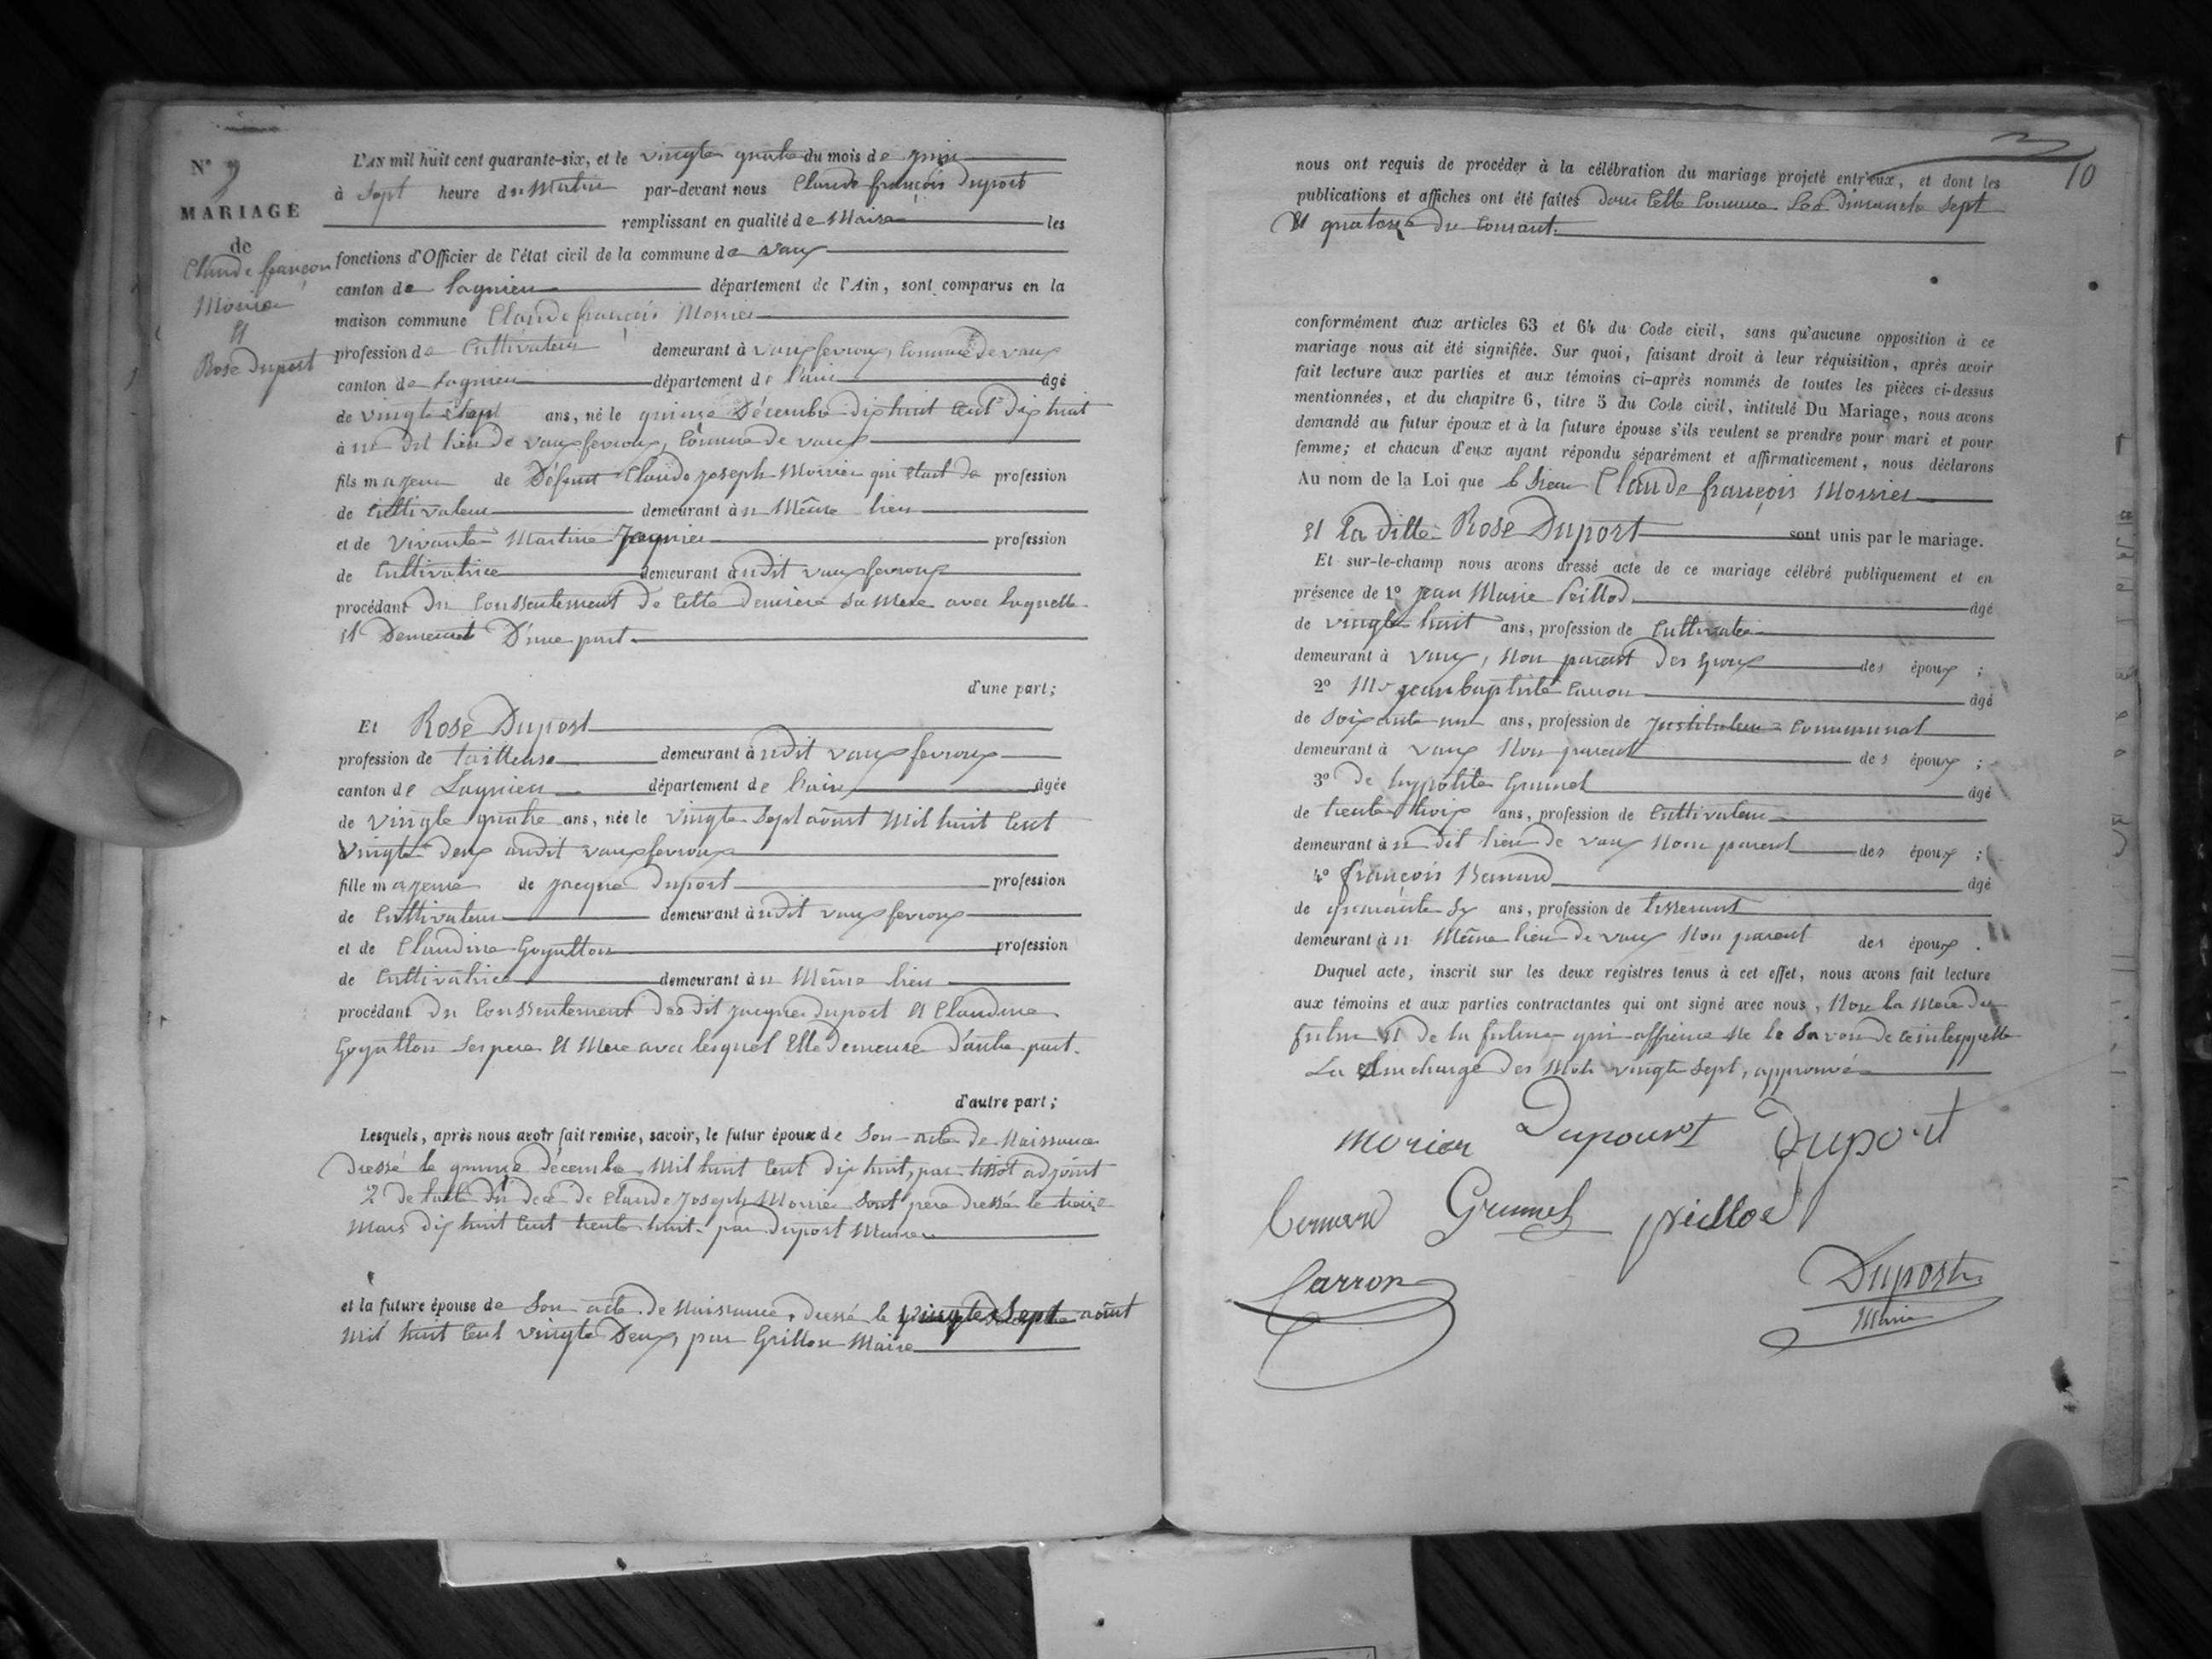 N° 9
MARIAGE
de
Claude françois
Morrier
Et
Rose Duport
L'AN mil huit cent quarante-six, et le vingte quatre du mois de juin
à Sept heure du Matin par-devant nous Claude françois Duport
remplissant en qualité de Maire les
fonctions d'Officier de l'état civil de la commune de vaux
canton de Lagnieu département de l'Ain, sont comparus en la
maison commune Claude françois Morrier
profession de Cultivateur demeurant à vauxfevroux, Commune de vaux
canton de Lagnieu département de l'ain âgé
de vingte Sept ans, né le quinze Décembre dix huit Cent dix huit
à un dit lieu de vauxfevroux, Commune de vaux
fils majeur de Défunt Claude joseph Morrier qui Etait de profession
de Cultivateur demeurant à u Même lieu
et de Vivante Martine profession
de Cultivatrice demeurant à udit vauxfevroux
procédant du Conssentement de Cette derniere Sa Mere avec laquelle
il Demeure D'une part.
d'une part;
Et Rose Duport
profession de tailleuse demeurant à udit vauxfevroux
canton de Lagnieu département de l'ain âgée
de vingte quatre ans, née le vingte Sept août Mil huit Cent
vingte deux audit vauxfevroux
fille majeure de jacque Duport profession
de Cultivateur demeurant à udit vauxfevroux
et de Claudine Goyatton profession
de Cultivatrice demeurant à u Même lieu
procédant du Conssentement desdit jacque duport Et Claudine
Goyatton Ses pere Et Mere avec lesquel Elle demeure D'autre part.
d'autre part;
Lesquels, après nous avoir fait remise, savoir, le futur époux de Son acte de Naissance
Dressé le quinze décembre Mil huit Cent dix huit, par tissot adjoint
2 de lacte du decè de Claude Joseph Morrier Sont pere dressé le treize
Mars dix huit Cent trente huit par Duport Maire
et la future épouse de Son acte de Naissance, dressé le vingte Sept août
Mil huit Cent vingte Deux, par Grillon Maire
10
nous ont requis de procéder à la célébration du mariage projeté entr'eux, et dont les
publications et affiches ont été faites dans Cette Commune Les Dimanche Sept
Et quatorze du Courant.
conformément aux articles 63 et 64 du Code civil, sans qu'aucune opposition à ce
mariage nous ait été signifiée. Sur quoi, faisant droit à leur réquisition, après avoir
fait lecture aux parties et aux témoins ci-après nommés de toutes les pièces ci-dessus
mentionnées, et du chapitre 6, titre 5 du Code civil, intitulé Du Mariage, nous avons
demandé au futur époux et à la future épouse s'ils veulent se prendre pour mari et pour
femme; et chacun d'eux ayant répondu séparément et affirmativement, nous déclarons
Au nom de la Loi que le Sieur Claude françois Morrier
Et la ditte Rose Duport sont unis par le mariage.
Et sur-le-champ nous avons dressé acte de ce mariage célébré publiquement et en
présence de 1° jean Marie Peillod âgé
de vingte huit ans, profession de Cultivateur
demeurant à vaux, Non parent des époux des époux ;
2° Mr jean baptiste Carron âgé
de Soixante un ans, profession de Jnstituteur Communal
demeurant à vaux Non parent des époux ;
3° de hyppolite Grumel âgé
de trente trois ans, profession de Cultivateur
demeurant à u dit lieu de vaux Non parent des époux ;
4° françois Bernard âgé
de quarante Six ans, profession de tisserant
demeurant à u Même lieu de vaux Non parent des époux .
Duquel acte, inscrit sur les deux registres tenus à cet effet, nous avons fait lecture
aux témoins et aux parties contractantes qui ont signé avec nous, Non la Mere du
futur Et de la future qui ne le Savoir de
La Surcharge Des Mots vingte Sept, approuvée
morier Dupourt Duport
bernard Grumel peillod
Carron Duport
Maire